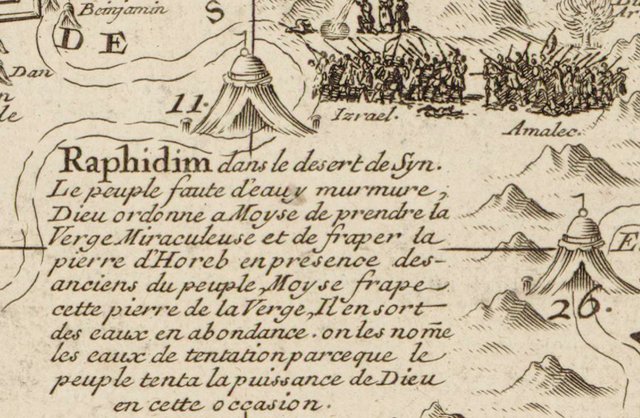 Beinjamin
S
DE
Dan
le
11.
Izrael.
Amalec.
Raphidim dans le desert de Syn.
Le peuple faute d'eau y murmure,
Dieu ordonne a Moyse de prendre la
Verge Miraculeuse et de fraper la
pierre d'Horeb en présence des-
anciens du peuple, Moyse frape
cette pierre de la Verge, Il en sort
des eaux en abondance. on les nom̃e
les eaux de tentation parceque le
peuple tenta la puissance de Dieu
en cette occasion.
26.